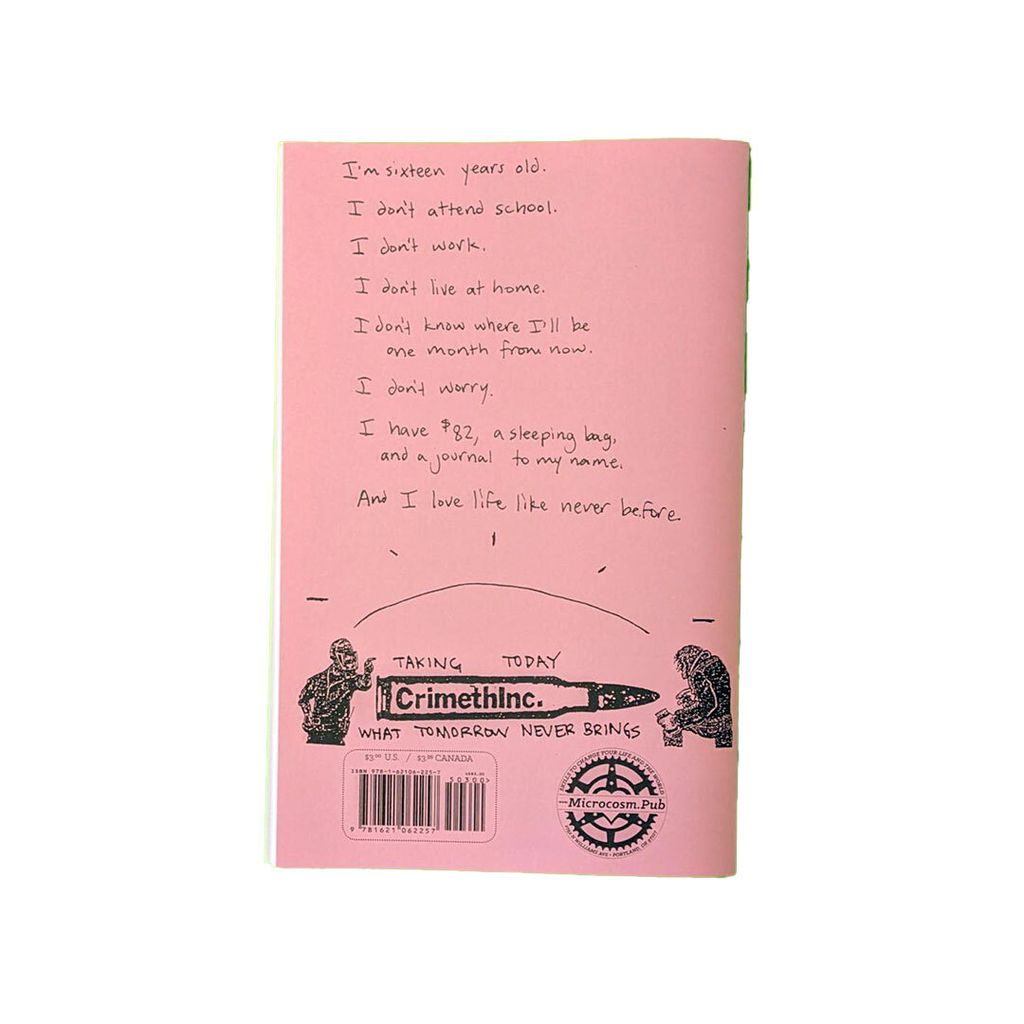 I'm sixteen years old.
I don't attend school.
I don't work.
I don't live at home.
I don't know where I'll be
one month from now.
I don't worry.
I have $82, a sleeping bag,
and a journal to my name.
And I love life like never before.
TAKING TODAY
CrimethInc.
WHAT TOMORROW NEVER BRINGS
$3.00 U.S. / $3.00 CANADA
ISBN 978-1-62106-225-7
50300>
9 781621 062257
SKILLS TO CHANGE YOUR LIFE AND THE WORLD
Microcosm.Pub
WILLIAMS AVE • PORTLAND, OR